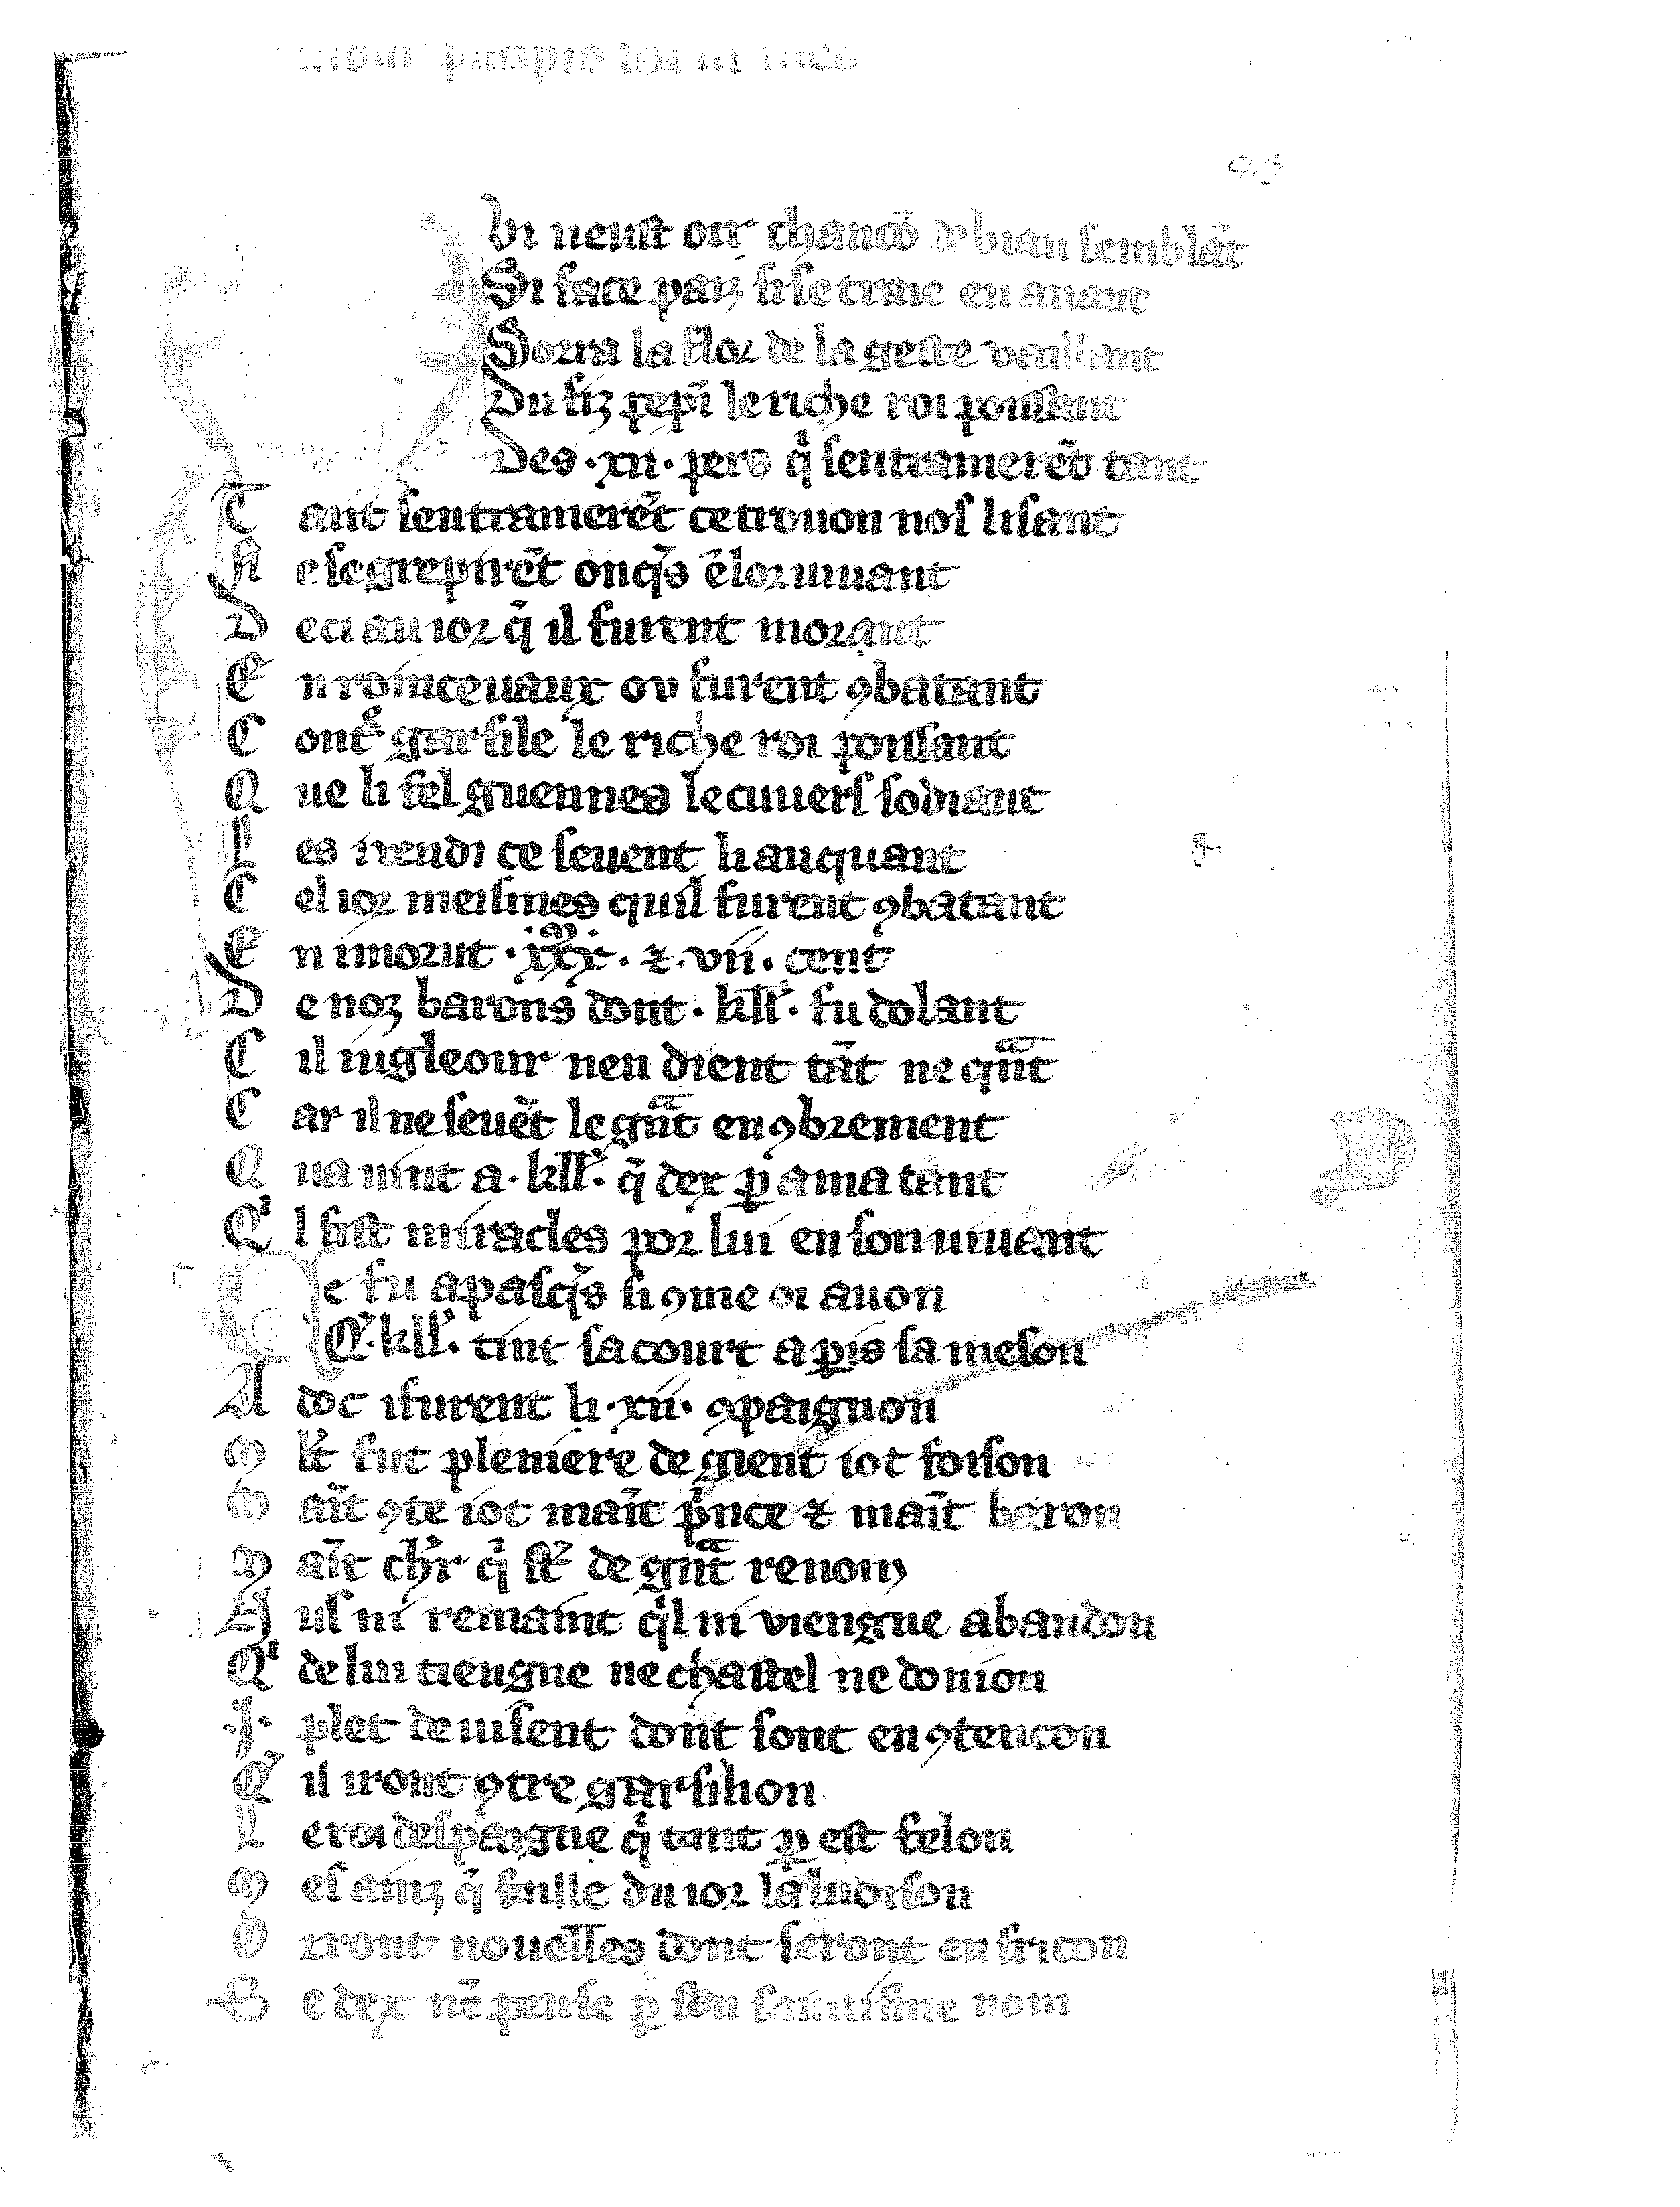 ui ueust oir chancõ de biau semblãt
Si face paiz si se traie en auant
Sorra la flor de la geste vaillant
Du fiz pepĩ le riche roi poussant
Des .xii. pers qͥ sentramerẽt tant
Tant sentramerẽt ce trouon nos lisant
Ne se grepirẽt onqͣs ẽ lor uiuant
De ci au ior q̃ il furent morant
En roinceuaux ou furent ꝯbatant
Contͤ garsile le riche roi poussant
Que li fel guennes le cuuers sodiant
Les i vendi ce seuent li auquant
Cel ior meismes quil furent ꝯbatant
En i morut .xxx. ⁊ .vii. cent
De noz barons dont .kll'. fu dolant
Cil iugleour nen dient tãt ne qͣnt
Car il ne seuẽt le gͣnt enꝯbrement
Qua uint a .kll'. q̃ dex ꝑ ama tant
Qͥl fist miracles por lui en son uiuant
Ce fu a pasqͣs si ꝯme oi auon
Q̃ .kll'. tint sa court a ꝑis sa meson
Adoc i furent li .xii. ꝯpaignon
Mlt' fut pleniere de gient i ot foison
Maĩt ꝯte i ot maĩt pͥnce ⁊ maĩt baron
Maĩt chͬr qͥ st' de gͣnt renom
Nus ni remaint qͥl ni viengne abandon
Qͥ de lui tiengne ne chastel ne donion
.I. plet deuisent dont sont en ꝯtencon
Q̃ il iront ꝯtre garsilion
Le roi despaigne qͥ tant ꝑ est felon
Mes ainz q̃ faille du ior la luoison
Orront nouelles dont seront en fricon
Se dex nẽ pense ꝑ son saintisme nom